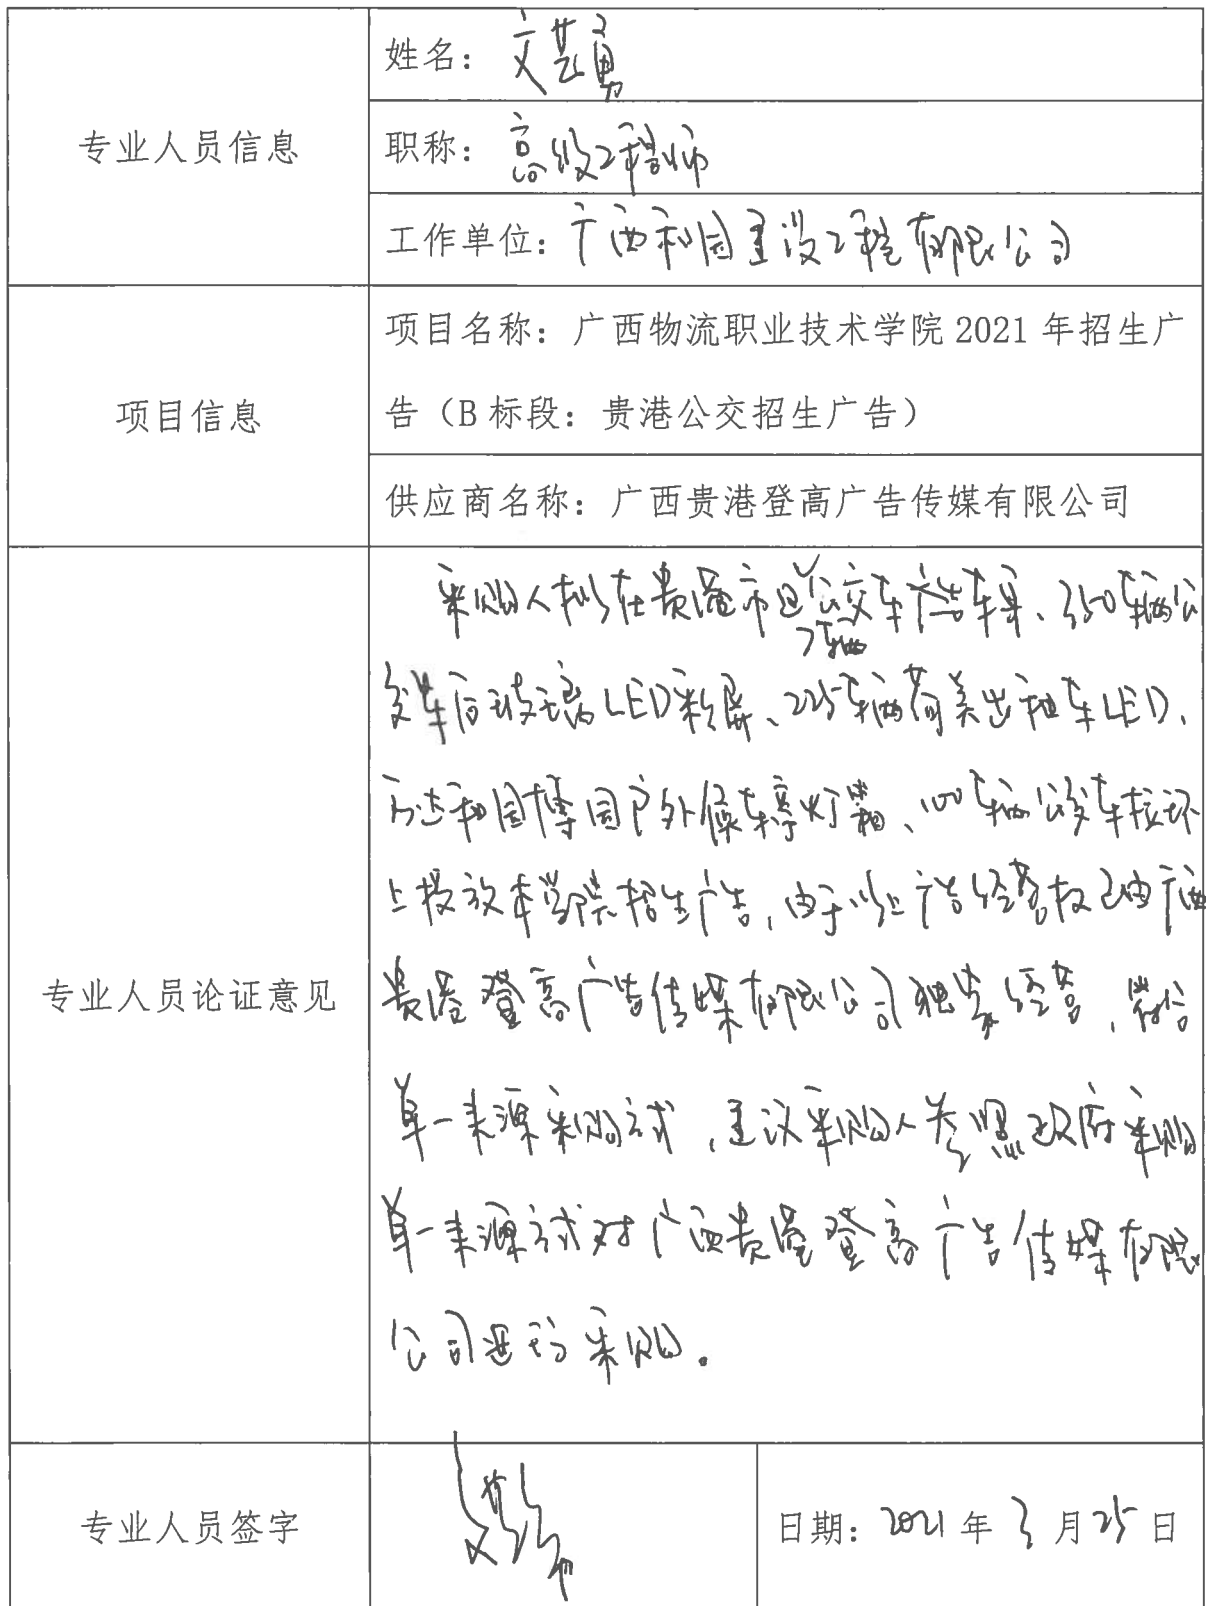 姓名：文艺勇
专业人员信息
职称：高级工程师
工作单位：广西和园建设工程有限公司
项目名称：广西物流职业技术学院 2021 年招生广
项目信息
告（B 标段：贵港公交招生广告）
供应商名称：广西贵港登高广告传媒有限公司
采购人拟在贵港市区公交车广告车身、350车辆公
7辆
交车后玻璃LED彩屏、225车辆荷美出租车LED、
万达和园博园户外候车亭灯箱、100车辆公交车拉环
上投放本学院招生广告，由于以上广告经营权已由广西
专业人员论证意见
贵港登高广告传媒有限公司独家经营，符合
单一来源采购方式，建议采购人参照政府采购
单一来源方式对广西贵港登高广告传媒有限
公司进行采购。
专业人员签字
日期：2021 年 3 月 25 日